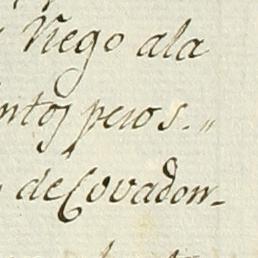 Riego ala
ntos pesos.„
de Covadon-